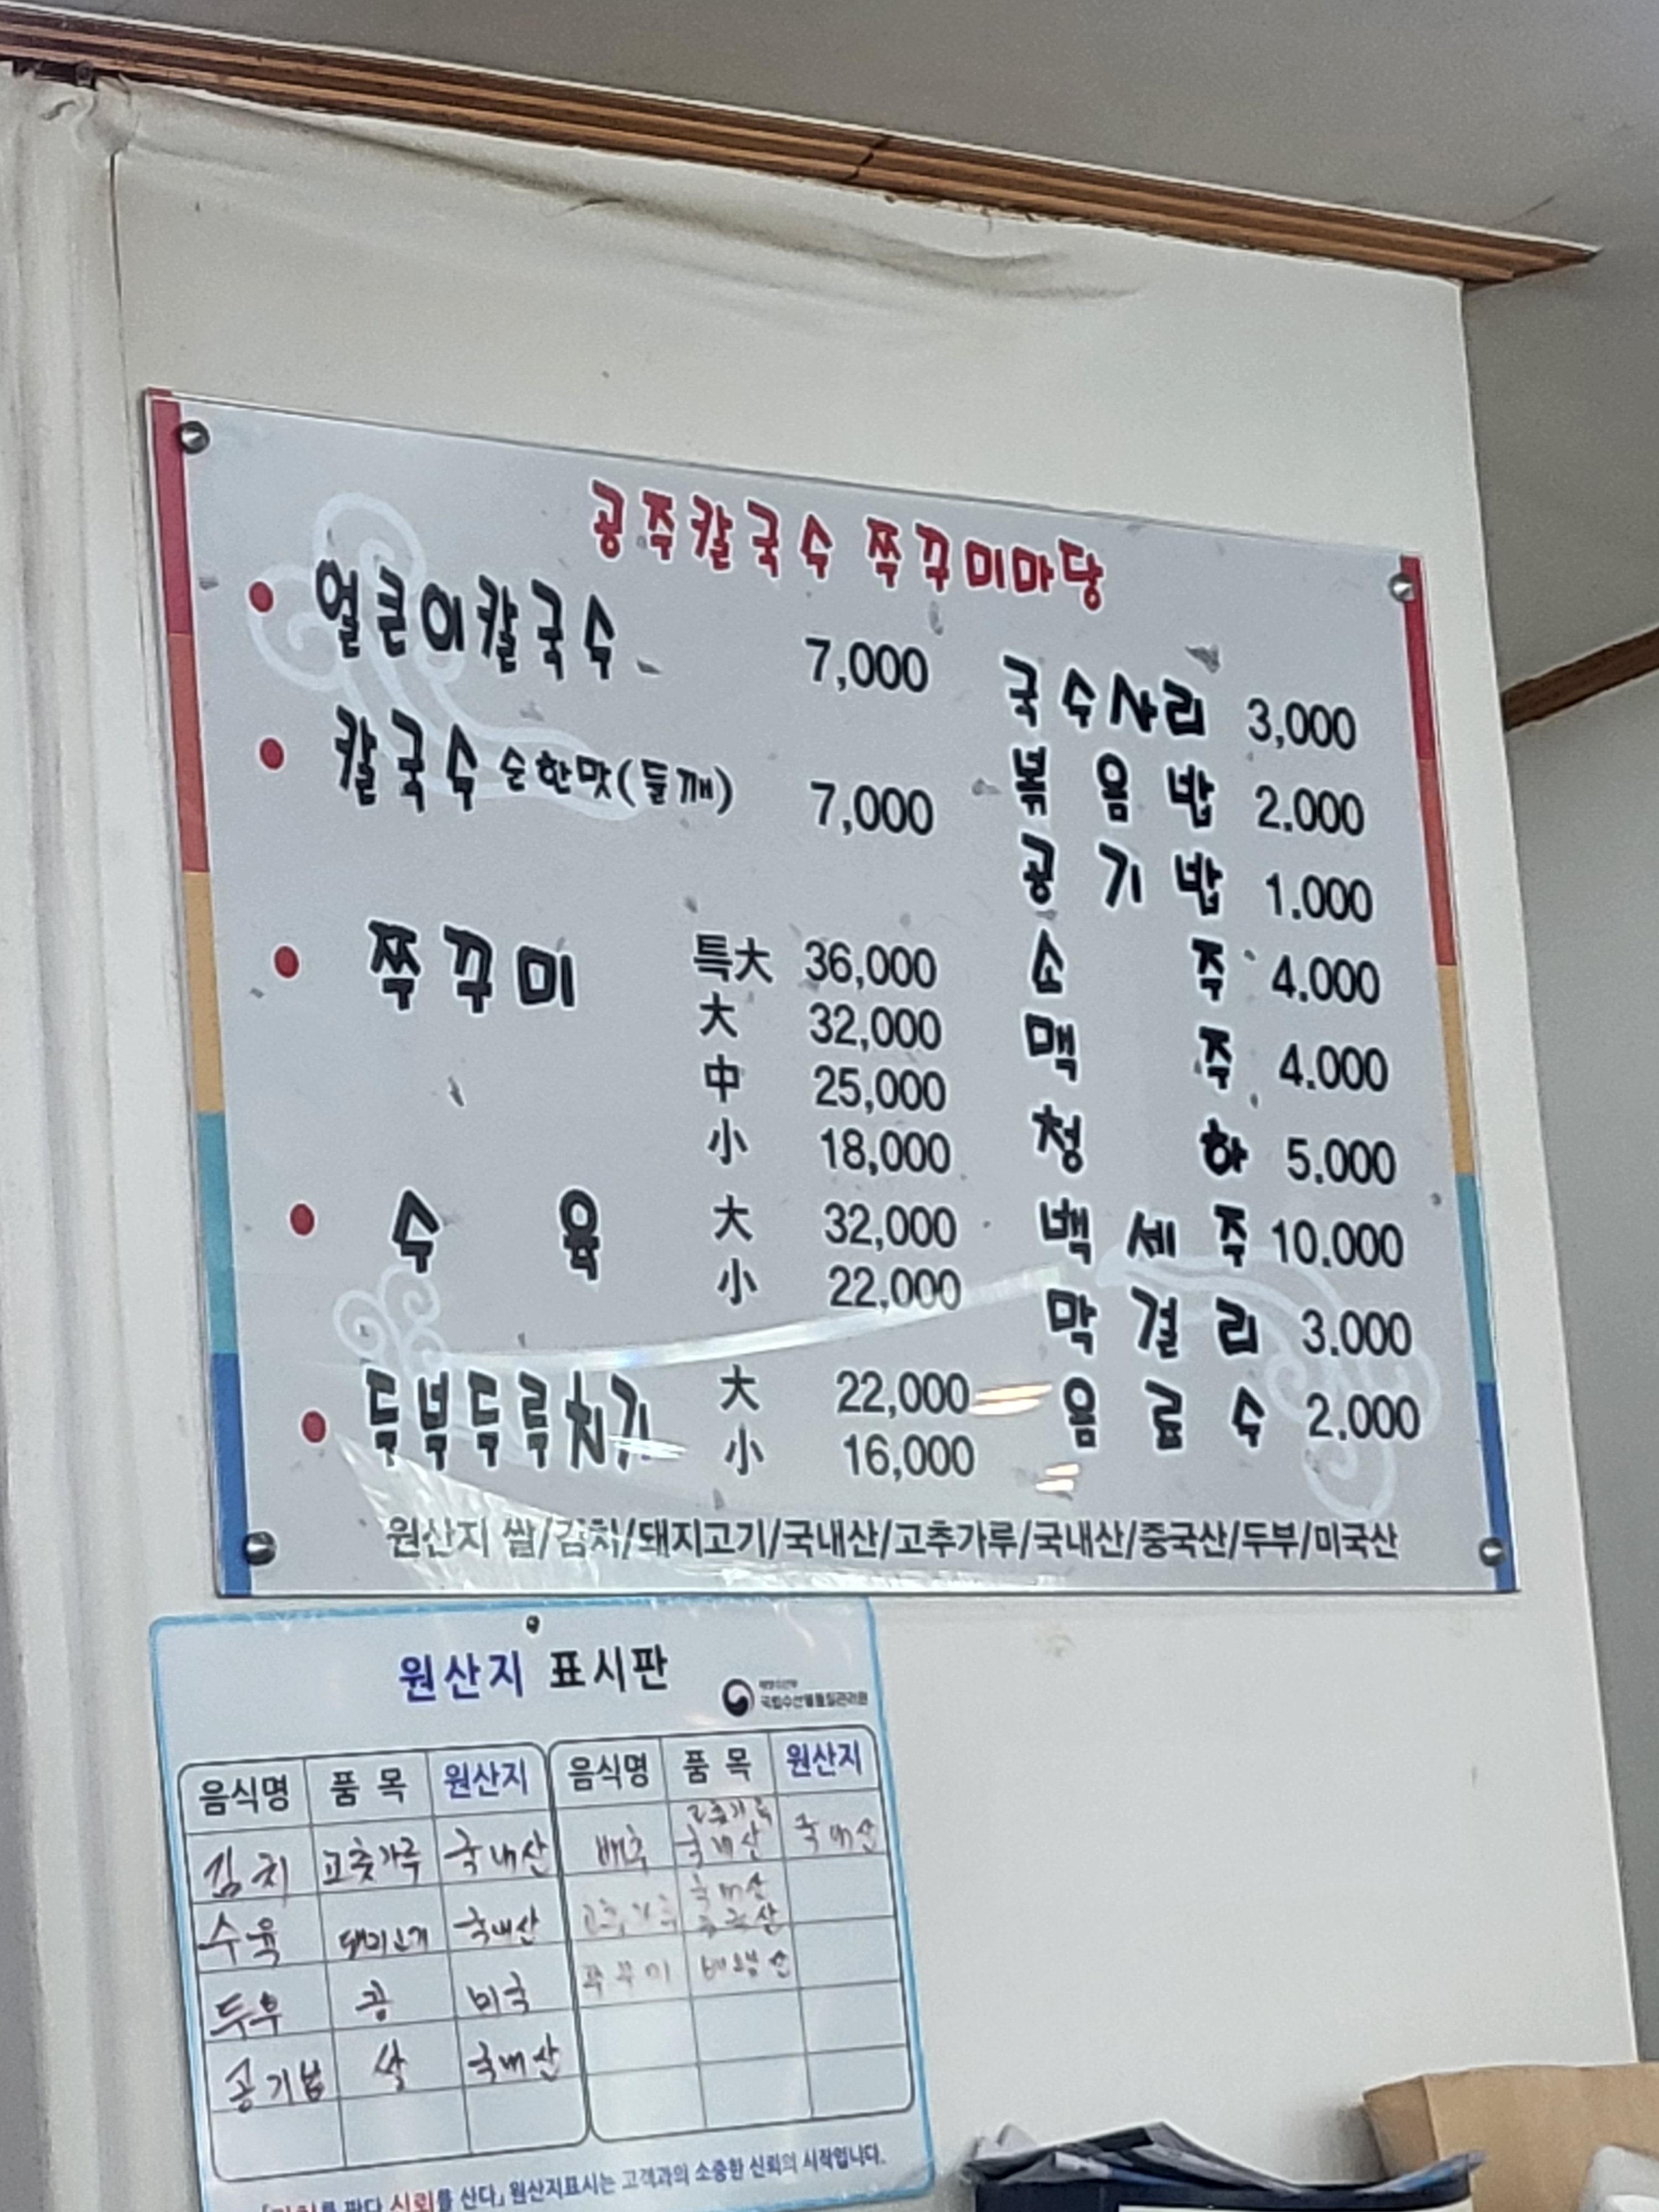 공주칼국수 쭈꾸미마당
얼큰이칼국수 7,000
칼국수 순한맛(들깨) 7,000
쭈꾸미 특大 36,000
大 32,000
中 25,000
小 18,000
수육 大 32,000
小 22,000
두부두루치기 大 22,000
小 16,000
국수사리 3,000
볶음밥 2.000
공기밥 1.000
소주 4.000
맥주 4.000
청하 5.000
백세주 10.000
막걸리 3.000
음료수 2.000
원산지 쌀/김치/돼지고기/국내산/고추가루/국내산/중국산/두부/미국산
원산지 표시판
국립수산물품질관리원
음식명 품목 원산지
김치 고춧가루 국내산
수육 돼지고기 국내산
두부 콩 미국
공기밥 쌀 국내산
음식명 품목 원산지
배추 고춧가루 국내산 국내산
국내산
중국산
쭈꾸미 베트남산
를 판다 신뢰를 산다」 원산지표시는 고객과의 소중한 신뢰의 시작입니다.